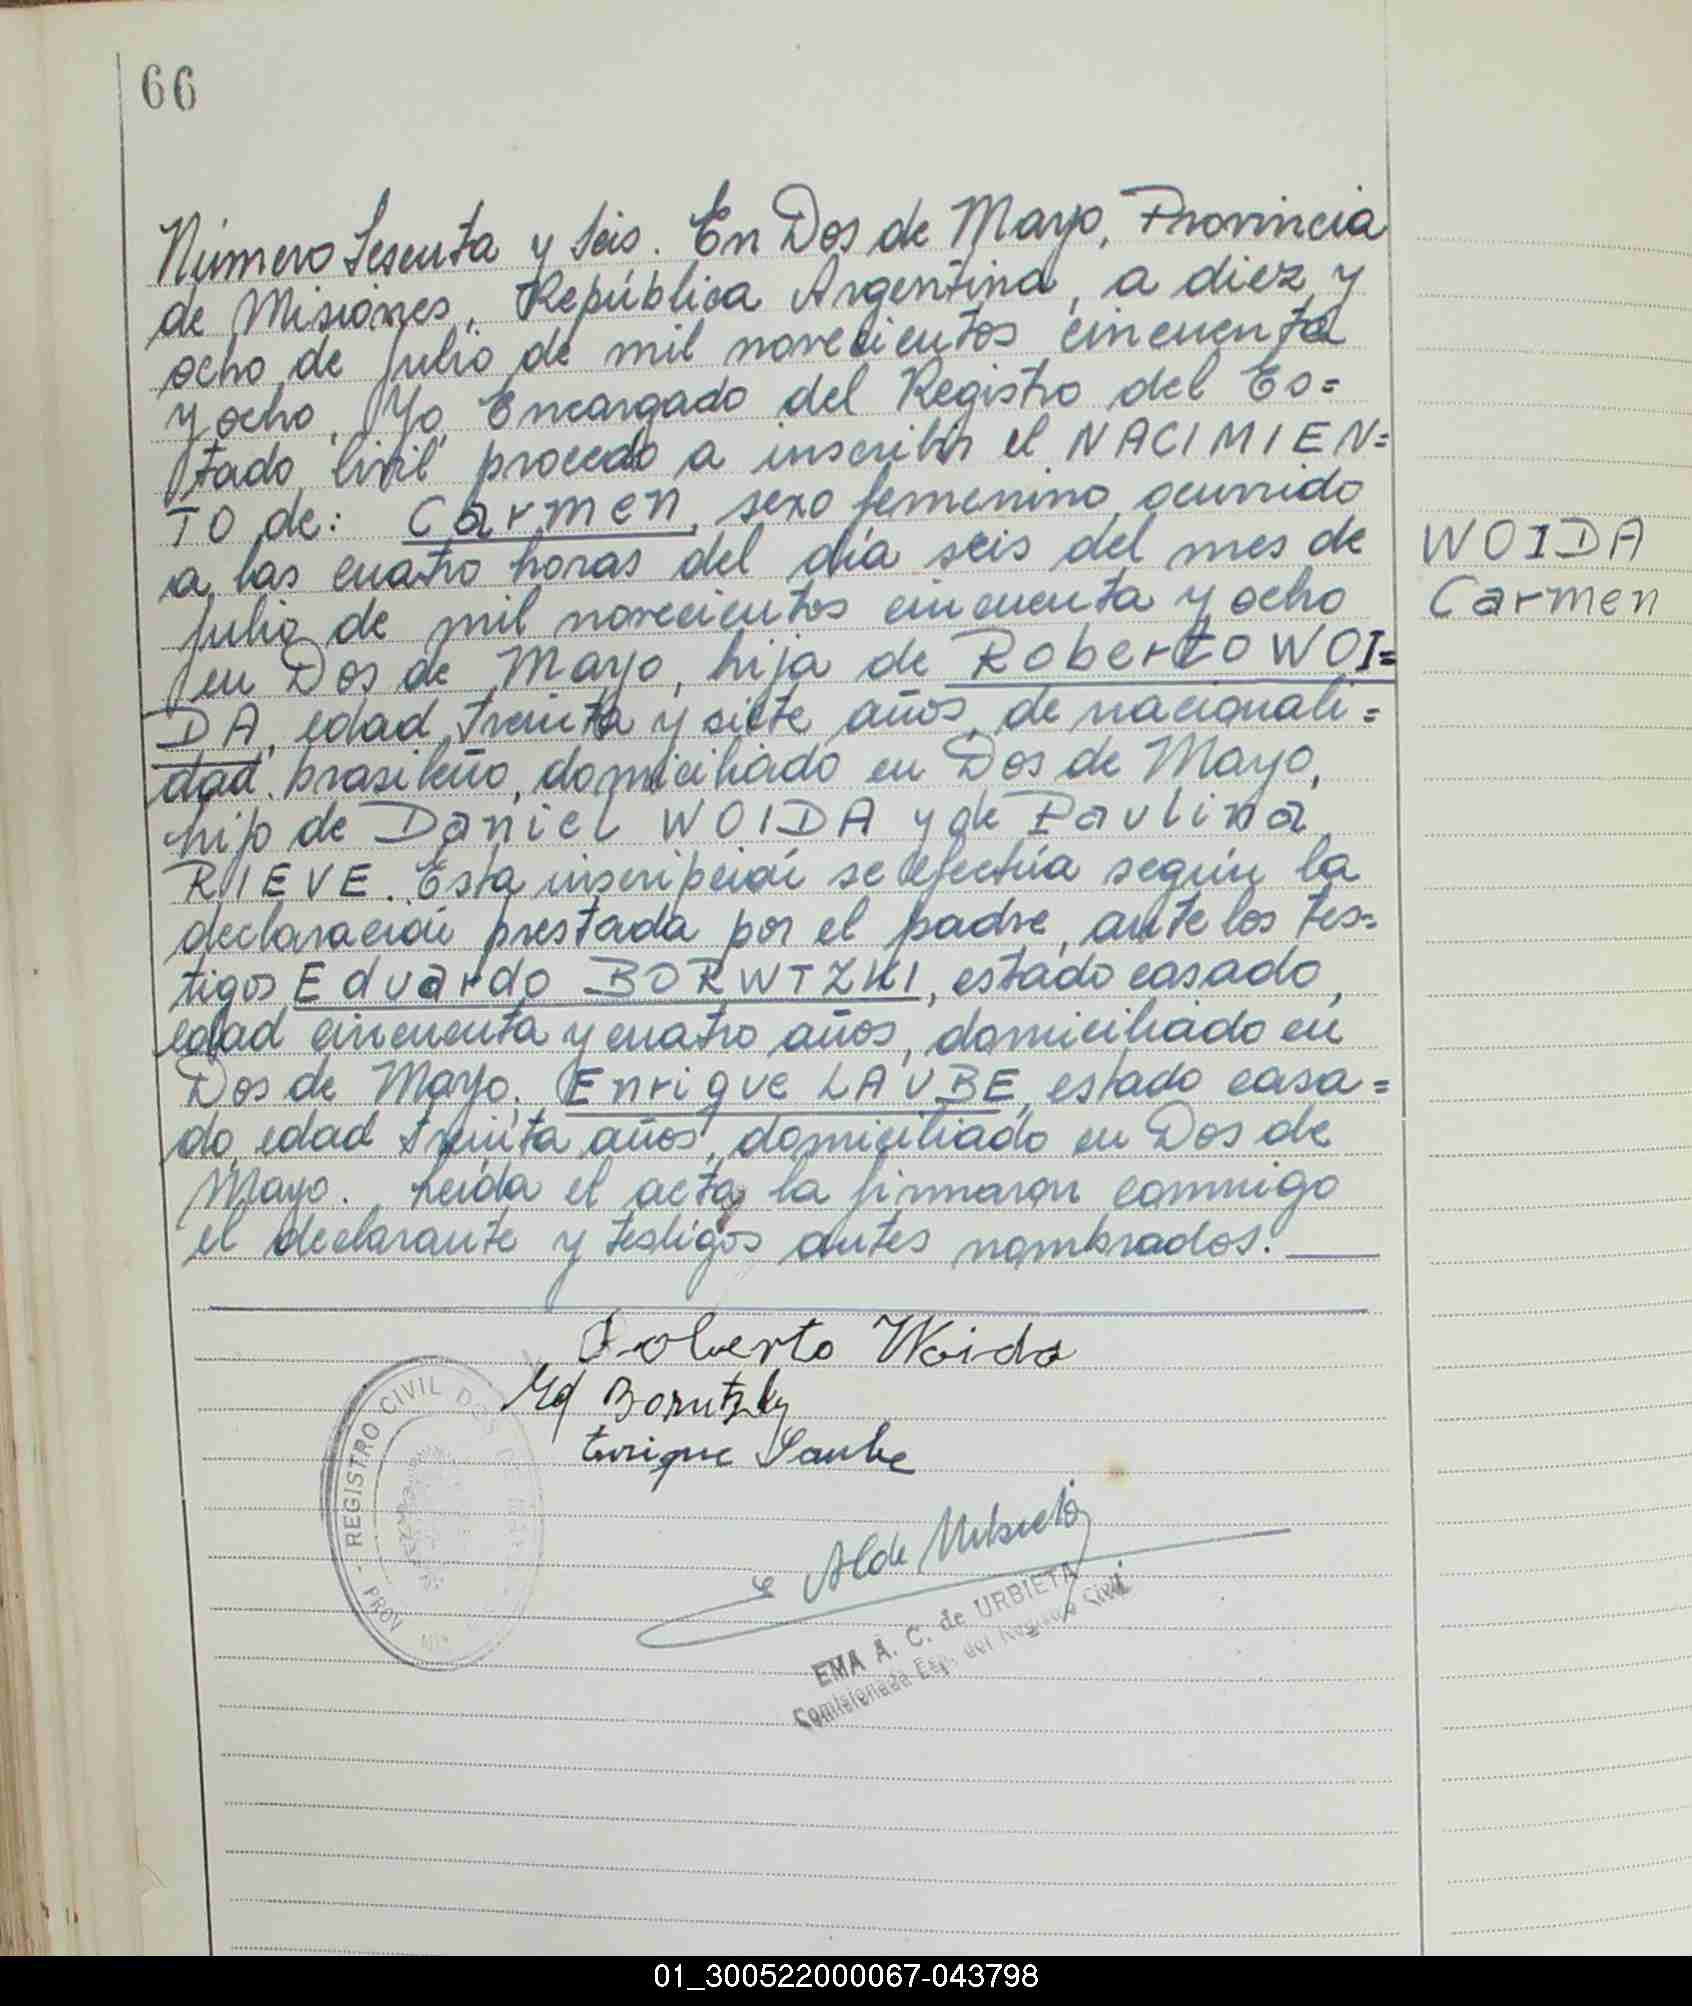 66
Número Sesenta y Seis. En Dos de Mayo, Provincia
de Misiones, República Argentina, a diez y
ocho de julio de mil novecientos cincuenta
y ocho, Yo Encargado del Registro del Es=
tado Civil procedo a inscribir el NACIMIEN=
TO de: Carmen, sexo femenino, ocurrido
a las cuatro horas del día seis del mes de
julio de mil novecientos cincuenta y ocho
en Dos de Mayo, hija de Roberto WOI=
DA, edad treinta y siete años, de nacionali=
dad brasileño, domiciliado en Dos de Mayo,
hijo de Daniel WOIDA y de Paulina
RIEVE. Esta inscripción se efectúa según la
declaración prestada por el padre, ante los tes=
tigos Eduardo BORWTZKI, estado casado,
edad cincuenta y cuatro años, domiciliado en
Dos de Mayo, Enrique LAUBE, estado casa=
do, edad treinta años, domiciliado en Dos de
Mayo. Leída el acta, la firmaron conmigo
el declarante y testigos antes nombrados.
WOIDA
Carmen
Roberto Woida
Ed Borutzky
Enrique Laube
REGISTRO CIVIL DOS DE
PROV
EMA A. C. de URBIETA
Comisionada Esp. del Registro Civil
01_300522000067-043798